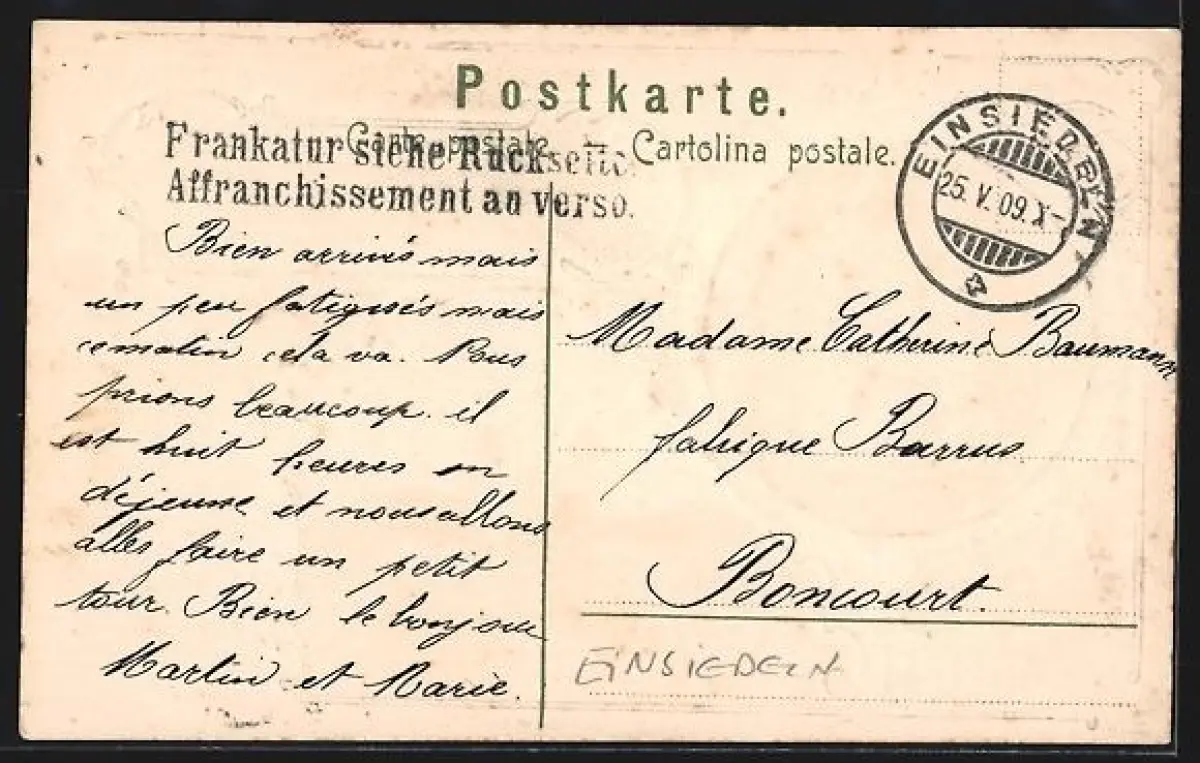 Postkarte.
Carte postale. – Cartolina postale.
Frankatur siehe Rückseite.
Affranchissement au verso.
EINSIEDELN
25. V. 09. X-
Bien arrivés mais
un peu fatigués mais
ce matin cela va.
prions beaucoup. il
est huit heures on
déjeune et nous allons
aller faire un petit
tour. Bien le bonjour
Martin et Marie.
Madame Catherine Baumann
fabrique Burrus
Boncourt.
EINSIEDELN